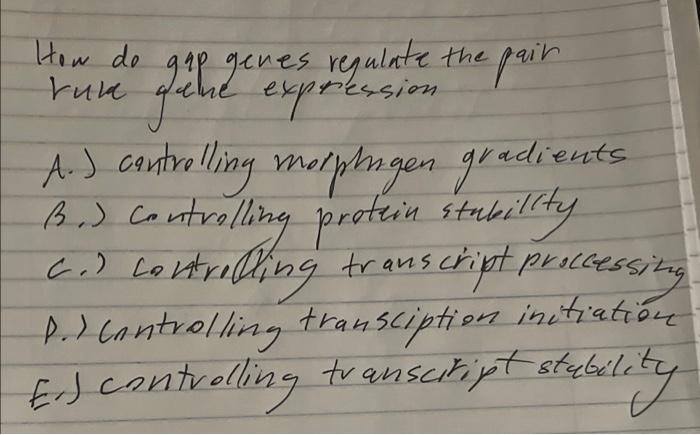 How do gap genes regulate the pair
rule gene expression
A.) controlling morphogen gradients
B.) controlling protein stability
C.) controlling transcript proccessing
D.) controlling transciption initiation
E.) controlling transcript stability